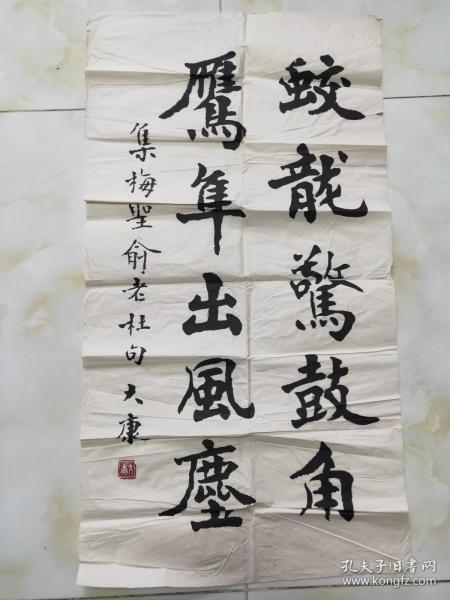 蛟龍驚鼓角
鷹隼出風塵
集梅聖俞老杜句 大康
孔夫子旧书网
www.kongfz.com